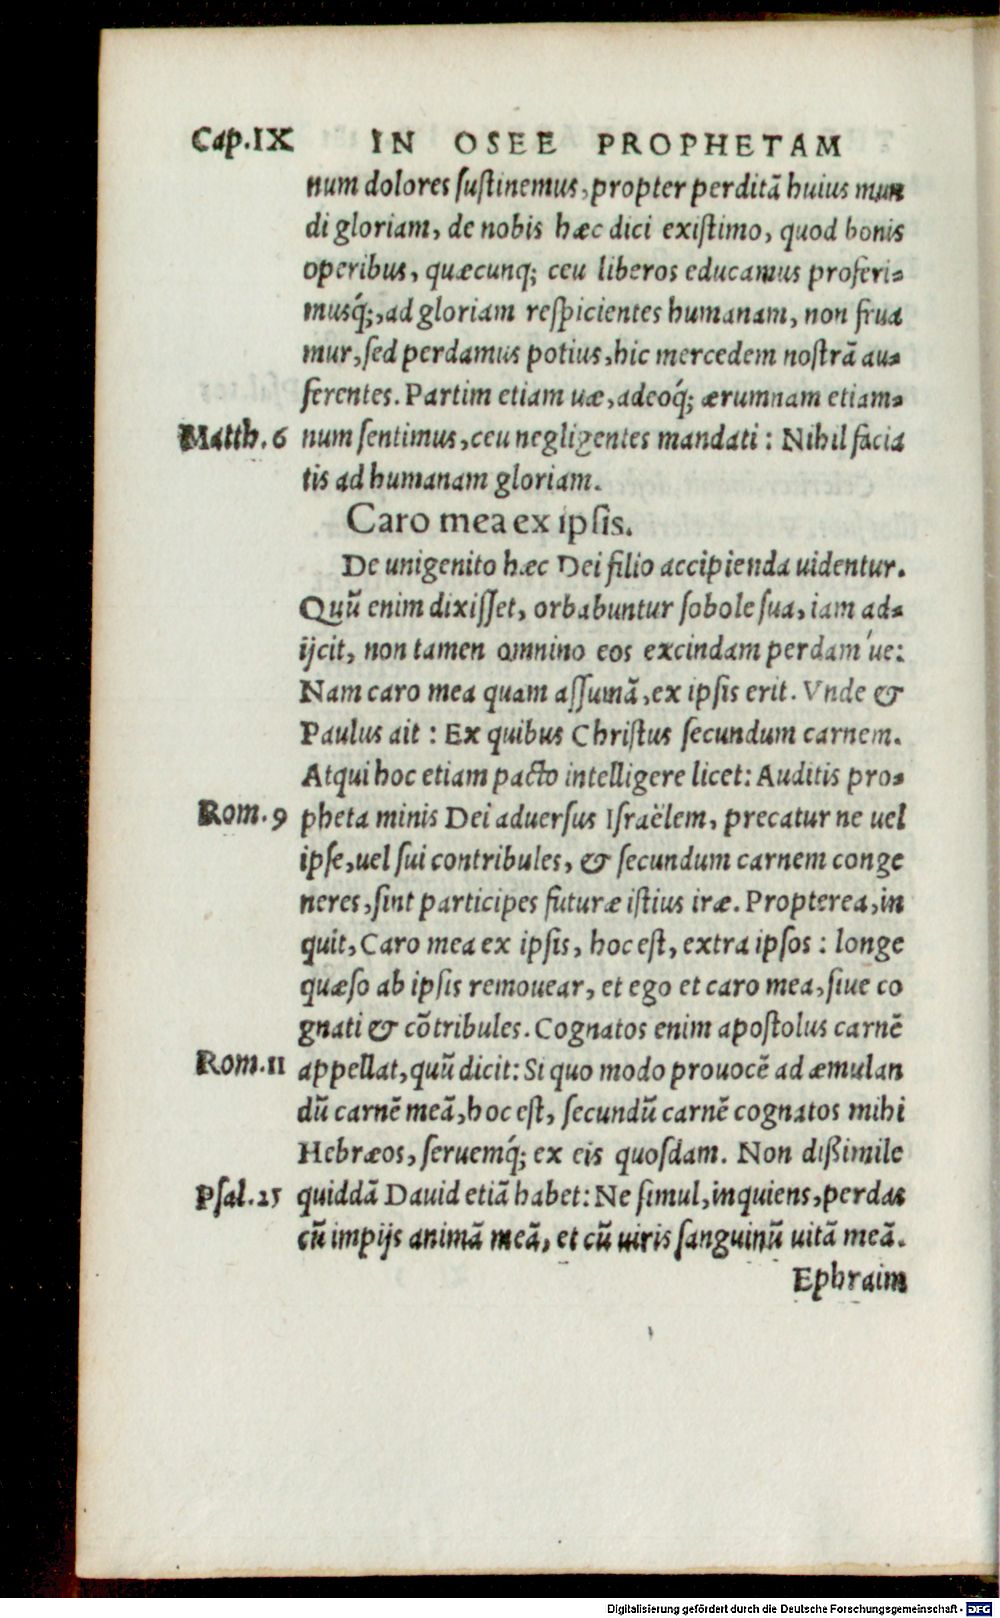 Cap.IX IN OSEE PROPHETAM
num dolores ſuſtinemus, propter perditā huius mun
di gloriam, de nobis hæc dici exiſtimo, quod bonis
operibus, quæcunq; ceu liberos educamus proferi-
musq́;, ad gloriam reſpicientes humanam, non frua
mur, ſed perdamus potius, hic mercedem noſtrā au-
ferentes. Partim etiam uæ, adeoq́; ærumnam etiam-
Matth.6 num ſentimus, ceu negligentes mandati: Nihil facia
tis ad humanam gloriam.
Caro mea ex ipſis.
De unigenito hæc Dei filio accipienda uidentur.
Quū enim dixiſſet, orbabuntur ſobole ſua, iam ad-
ijcit, non tamen omnino eos excindam perdam´ue:
Nam caro mea quam aſſumā, ex ipſis erit. Vnde &
Paulus ait: Ex quibus Chriſtus ſecundum carnem.
Atqui hoc etiam pacto intelligere licet: Auditis pro-
Rom.9 pheta minis Dei aduerſus Iſraëlem, precatur ne uel
ipſe, uel ſui contribules, & ſecundum carnem conge
neres, ſint participes futuræ iſtius iræ. Propterea, in
quit, Caro mea ex ipſis, hoc eſt, extra ipſos: longe
quæſo ab ipſis remouear, et ego et caro mea, ſiue co
gnati & cōtribules. Cognatos enim apoſtolus carnē
Rom.11 appellat, quū dicit: Si quo modo prouocē ad æmulan
dū carnē meā, hoc eſt, ſecundū carnē cognatos mihi
Hebræos, ſeruemq́; ex eis quoſdam. Non dißimile
Pſal.25 quiddā Dauid etiā habet: Ne ſimul, inquiens, perdas
cū impijs animā meā, et cū uiris ſanguinū uitā meā.
Ephraim
Digitalisierung gefördert durch die Deutsche Forschungsgemeinschaft - DFG